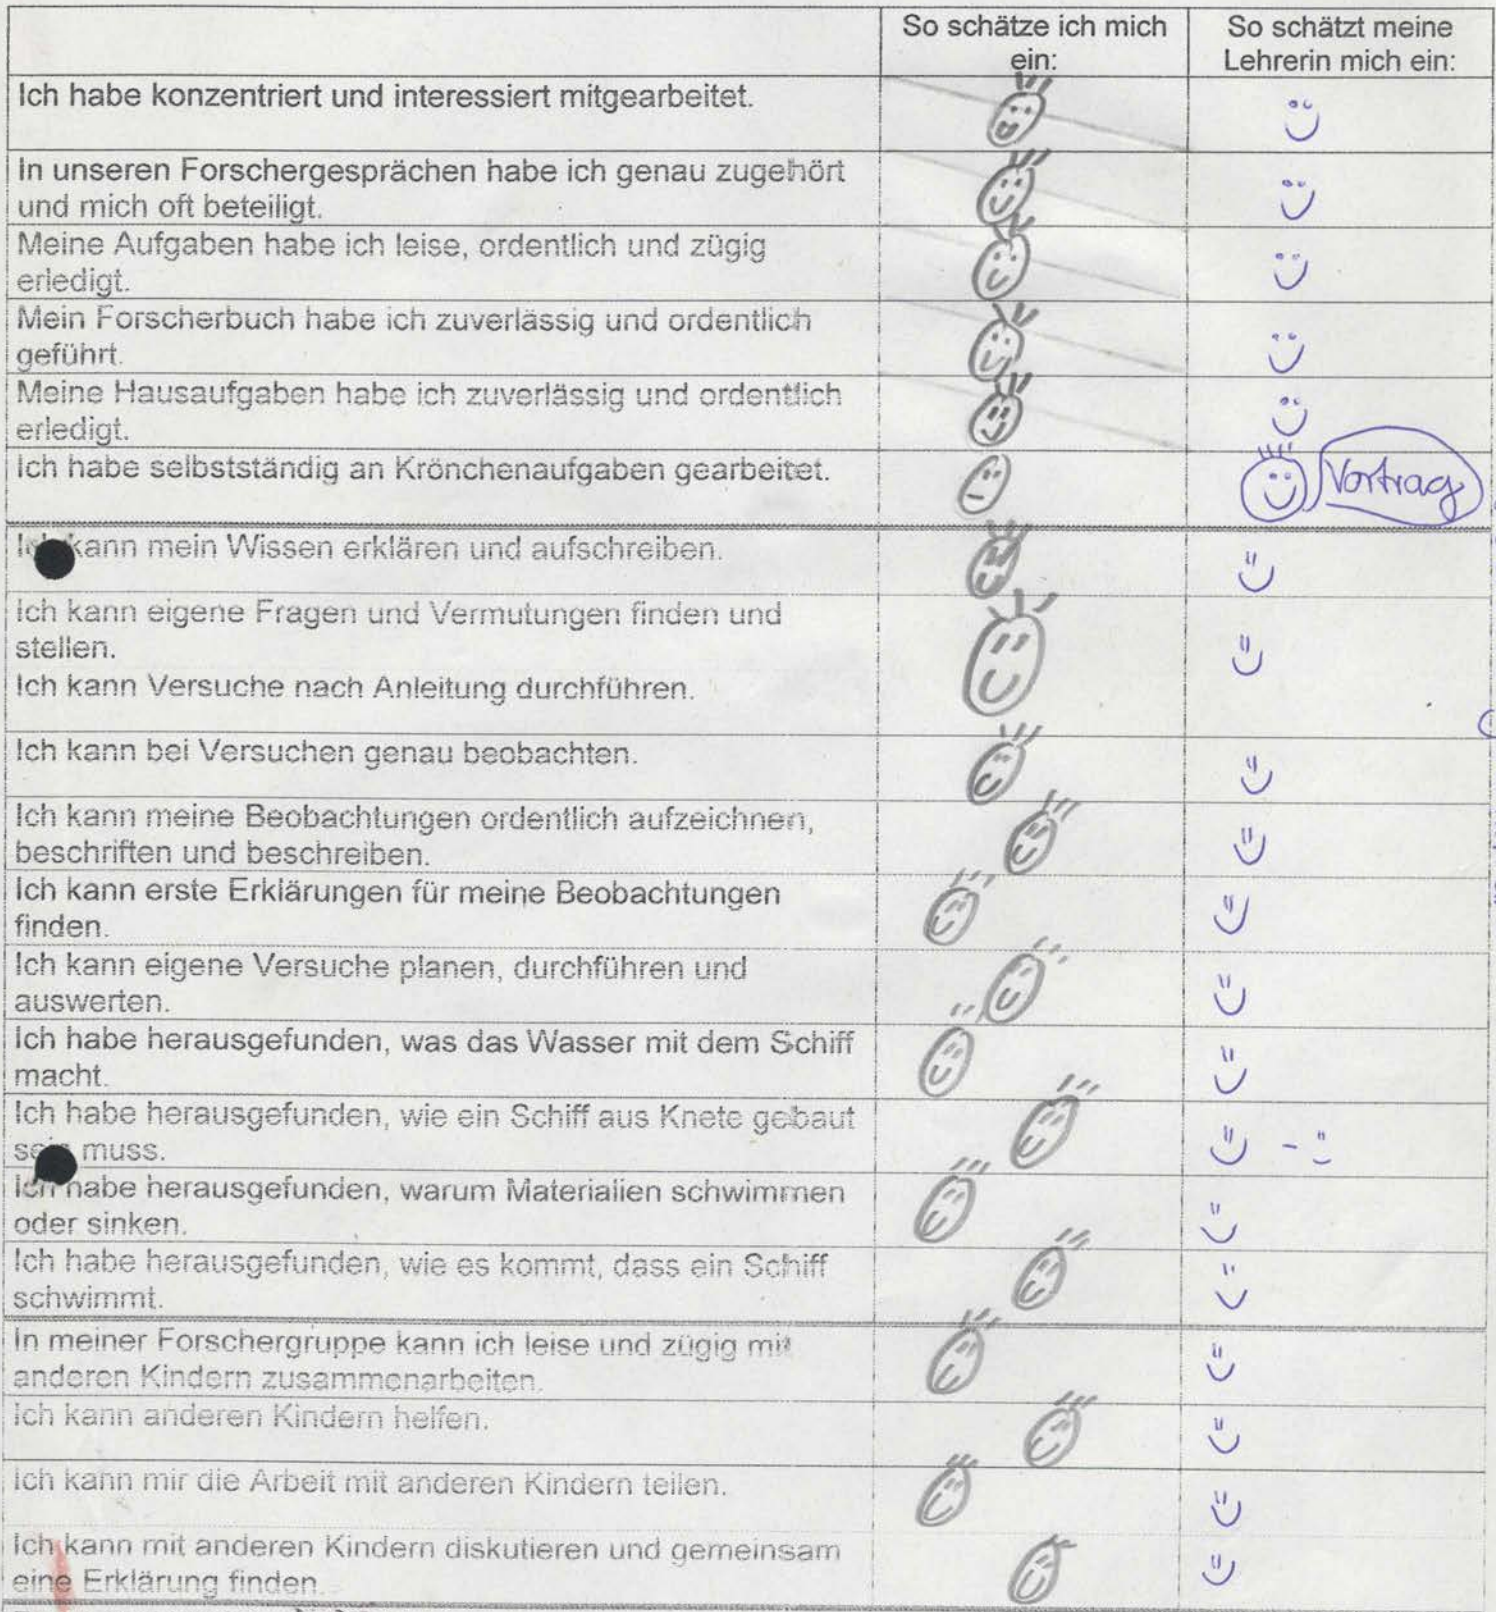 So schätze ich mich
ein:
So schätzt meine
Lehrerin mich ein:
Ich habe konzentriert und interessiert mitgearbeitet.
In unseren Forschergesprächen habe ich genau zugehört
und mich oft beteiligt.
Meine Aufgaben habe ich leise, ordentlich und zügig
erledigt.
Mein Forscherbuch habe ich zuverlässig und ordentlich
geführt.
Meine Hausaufgaben habe ich zuverlässig und ordentlich
erledigt.
Ich habe selbstständig an Krönchenaufgaben gearbeitet.
Vortrag
Ich kann mein Wissen erklären und aufschreiben.
Ich kann eigene Fragen und Vermutungen finden und
stellen.
Ich kann Versuche nach Anleitung durchführen.
Ich kann bei Versuchen genau beobachten.
Ich kann meine Beobachtungen ordentlich aufzeichnen,
beschriften und beschreiben.
Ich kann erste Erklärungen für meine Beobachtungen
finden.
Ich kann eigene Versuche planen, durchführen und
auswerten.
Ich habe herausgefunden, was das Wasser mit dem Schiff
macht.
Ich habe herausgefunden, wie ein Schiff aus Knete gebaut
sein muss.
Ich habe herausgefunden, warum Materialien schwimmen
oder sinken.
Ich habe herausgefunden, wie es kommt, dass ein Schiff
schwimmt.
In meiner Forschergruppe kann ich leise und zügig mit
anderen Kindern zusammenarbeiten.
Ich kann anderen Kindern helfen.
Ich kann mir die Arbeit mit anderen Kindern teilen.
Ich kann mit anderen Kindern diskutieren und gemeinsam
eine Erklärung finden.